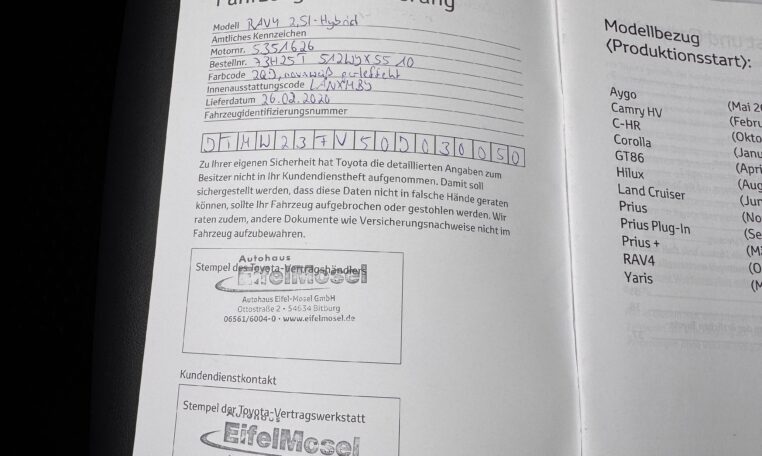 Modell RAV4 2,5l-Hybrid
Amtliches Kennzeichen
Motornr. 5351626
Bestellnr.
Farbcode 2QJ,
Innenausstattungscode
Lieferdatum 26.02.2020
Fahrzeugidentifizierungsnummer
JTMW237V50D030050
Zu Ihrer eigenen Sicherheit hat Toyota die detaillierten Angaben zum
Besitzer nicht in Ihr Kundendienstheft aufgenommen. Damit soll
sichergestellt werden, dass diese Daten nicht in falsche Hände geraten
können, sollte Ihr Fahrzeug aufgebrochen oder gestohlen werden. Wir
raten zudem, andere Dokumente wie Versicherungsnachweise nicht im
Fahrzeug aufzubewahren.
Autohaus
Stempel des Toyota-Vertragshändlers
EifelMosel
Autohaus Eifel-Mosel GmbH
Ottostraße 2 • 54634 Bitburg
06561/6004-0 • www.eifelmosel.de
Kundendienstkontakt
Stempel der Toyota-Vertragswerkstatt
EifelMosel
Modellbezug
(Produktionsstart):
Aygo (Mai 2
Camry HV (Febru
C-HR (Okto
Corolla (Janu
GT86 (Apri
Hilux (Aug
Land Cruiser (Jun
Prius (No
Prius Plug-In (Se
Prius + (M
RAV4 (O
Yaris (M